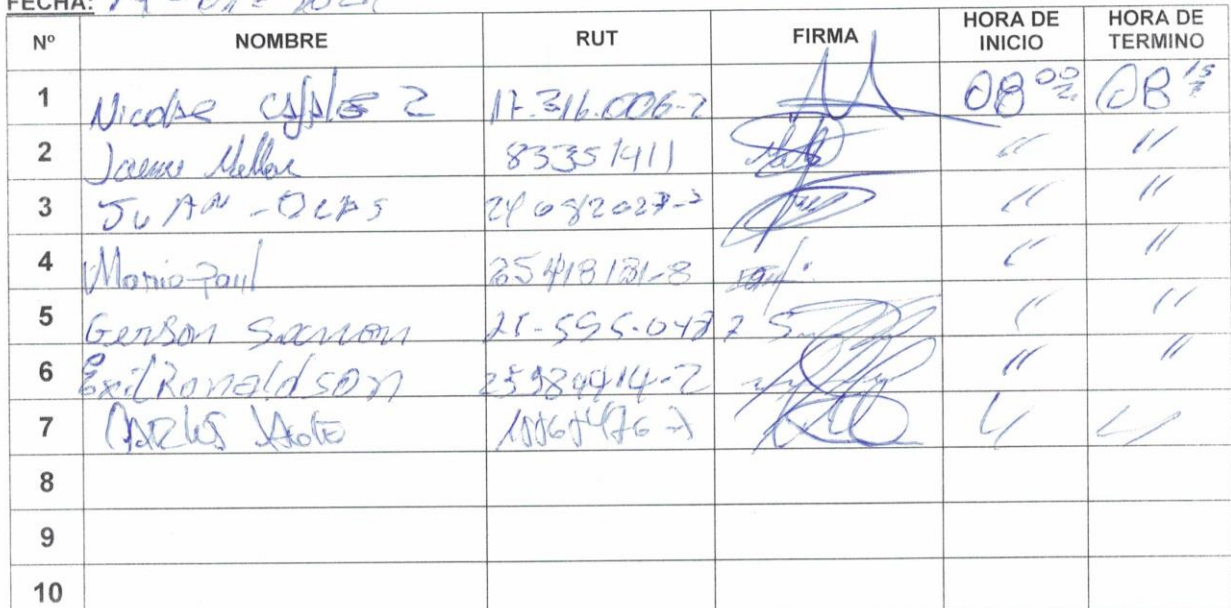 FECHA:
Nº NOMBRE RUT FIRMA HORA DE INICIO HORA DE TERMINO
1 Nicolas 17.316.006-2 08 00 08 15
2 Jaime 83351411 " "
3 JUAN - 24082027-2 " "
4 Mario Paul 25418131-8 " "
5 Gerson Sanon " "
6 Exil Ronaldson 25980414-2 " "
7 CARLOS Soto " "
8
9
10